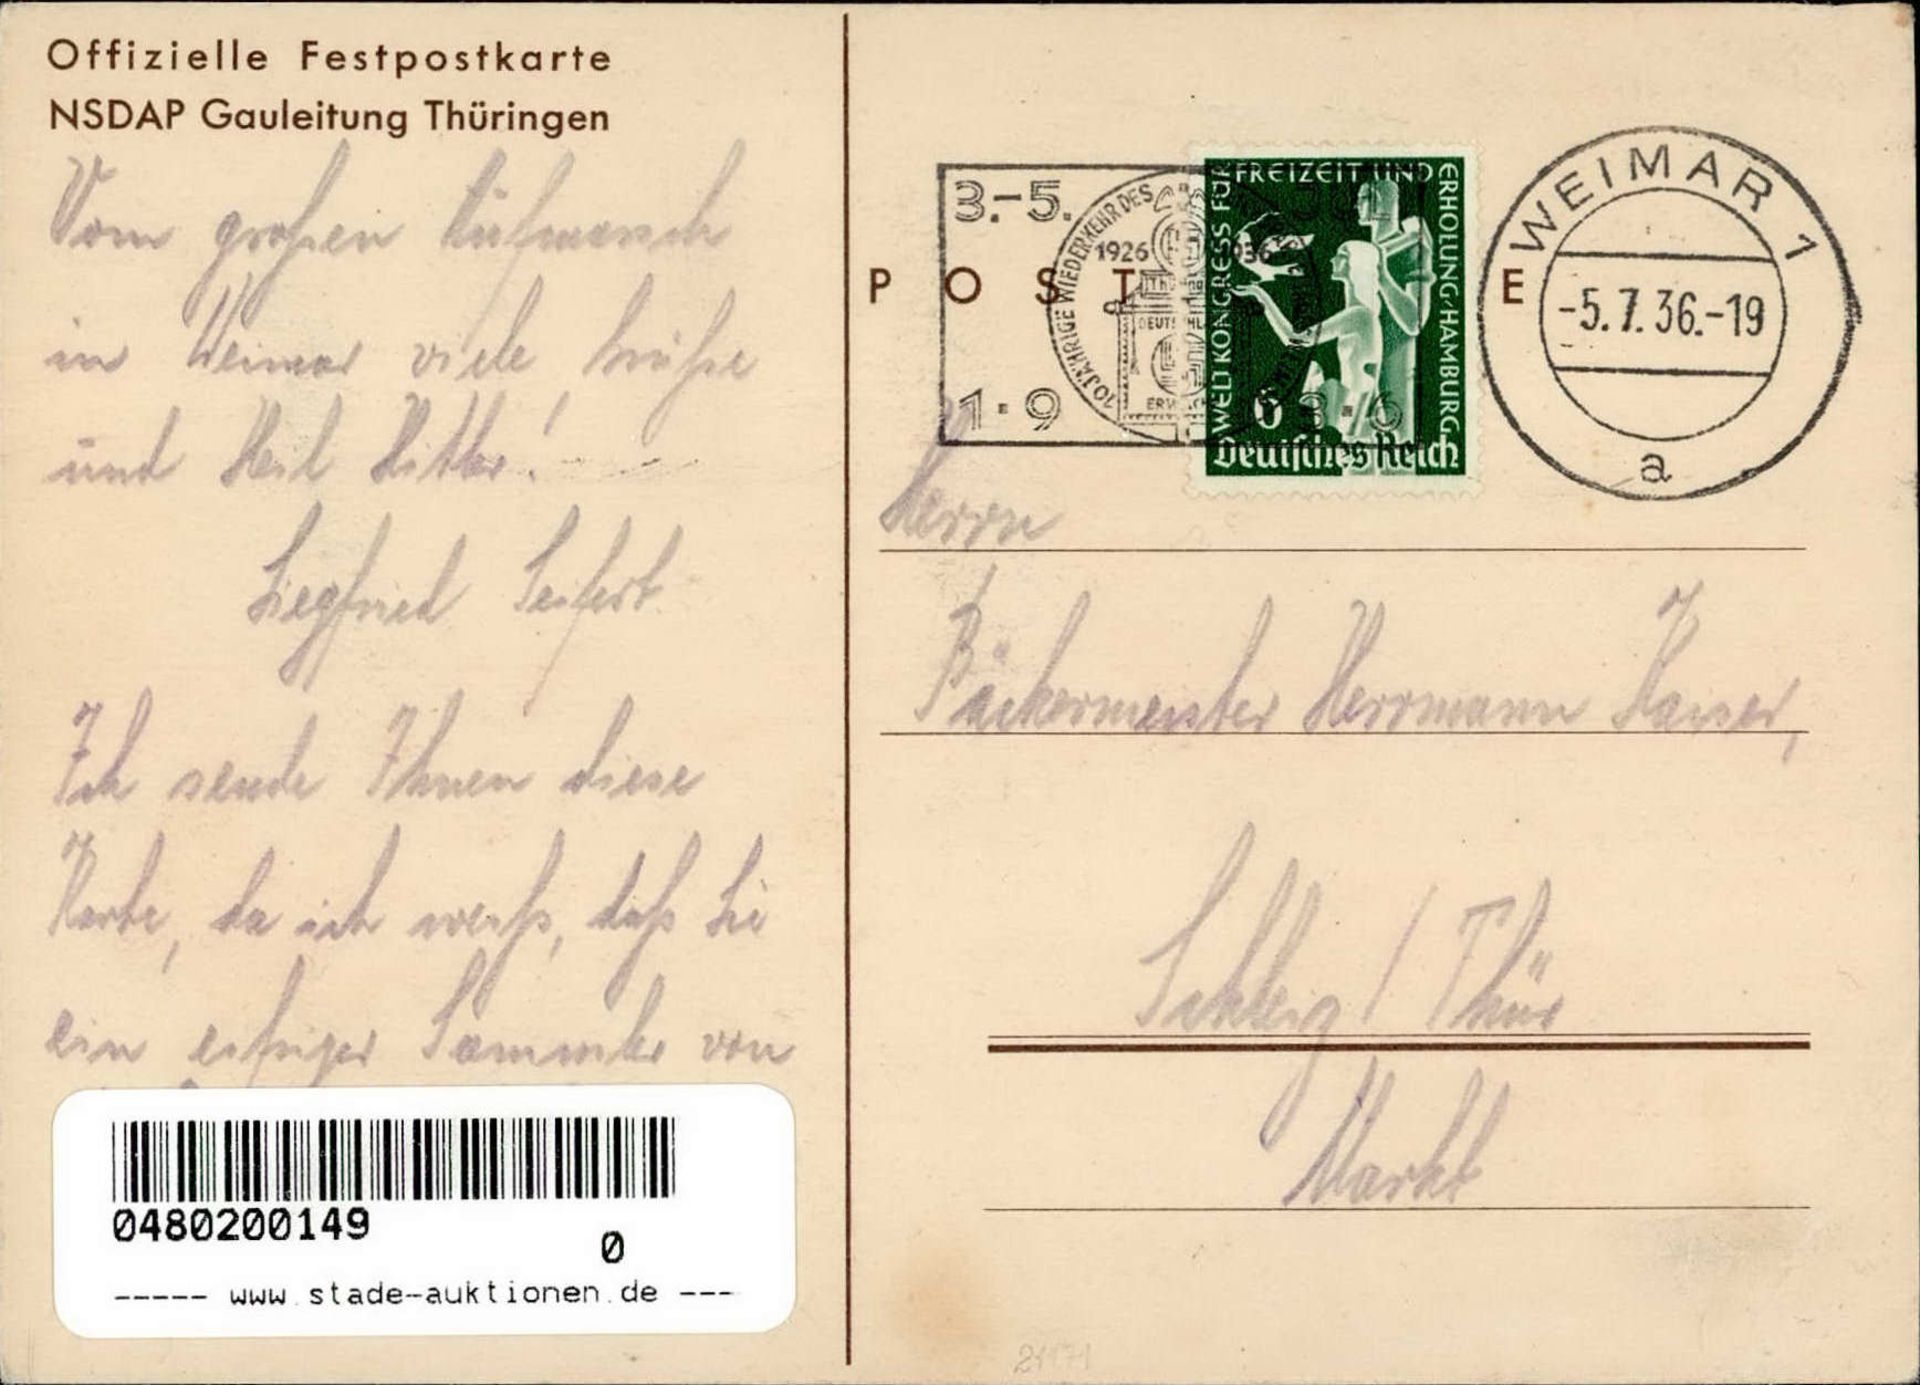 Offizielle Festpostkarte
NSDAP Gauleitung Thüringen
Vom großen Aufmarsch
in Weimar viele Grüße
und Heil Hitler!
Siegfried Seifert
Ich sende Ihnen diese
Karte, da ich weiß, daß Sie
ein eifriger Sammler von
0480200149
0
----- www.stade-auktionen.de ---
3.-5.
1-9
10 JÄHRIGE WIEDERKEHR DES
1926 1936
3-6
POST E
WELTKONGRESS FÜR
FREIZEIT UND
ERHOLUNG/HAMBURG
6
Deutsches Reich
WEIMAR 1
-5.7.36.-19
a
Herrn
Bäckermeister Herrmann Kaiser,
Schleiz / Thür
Markt